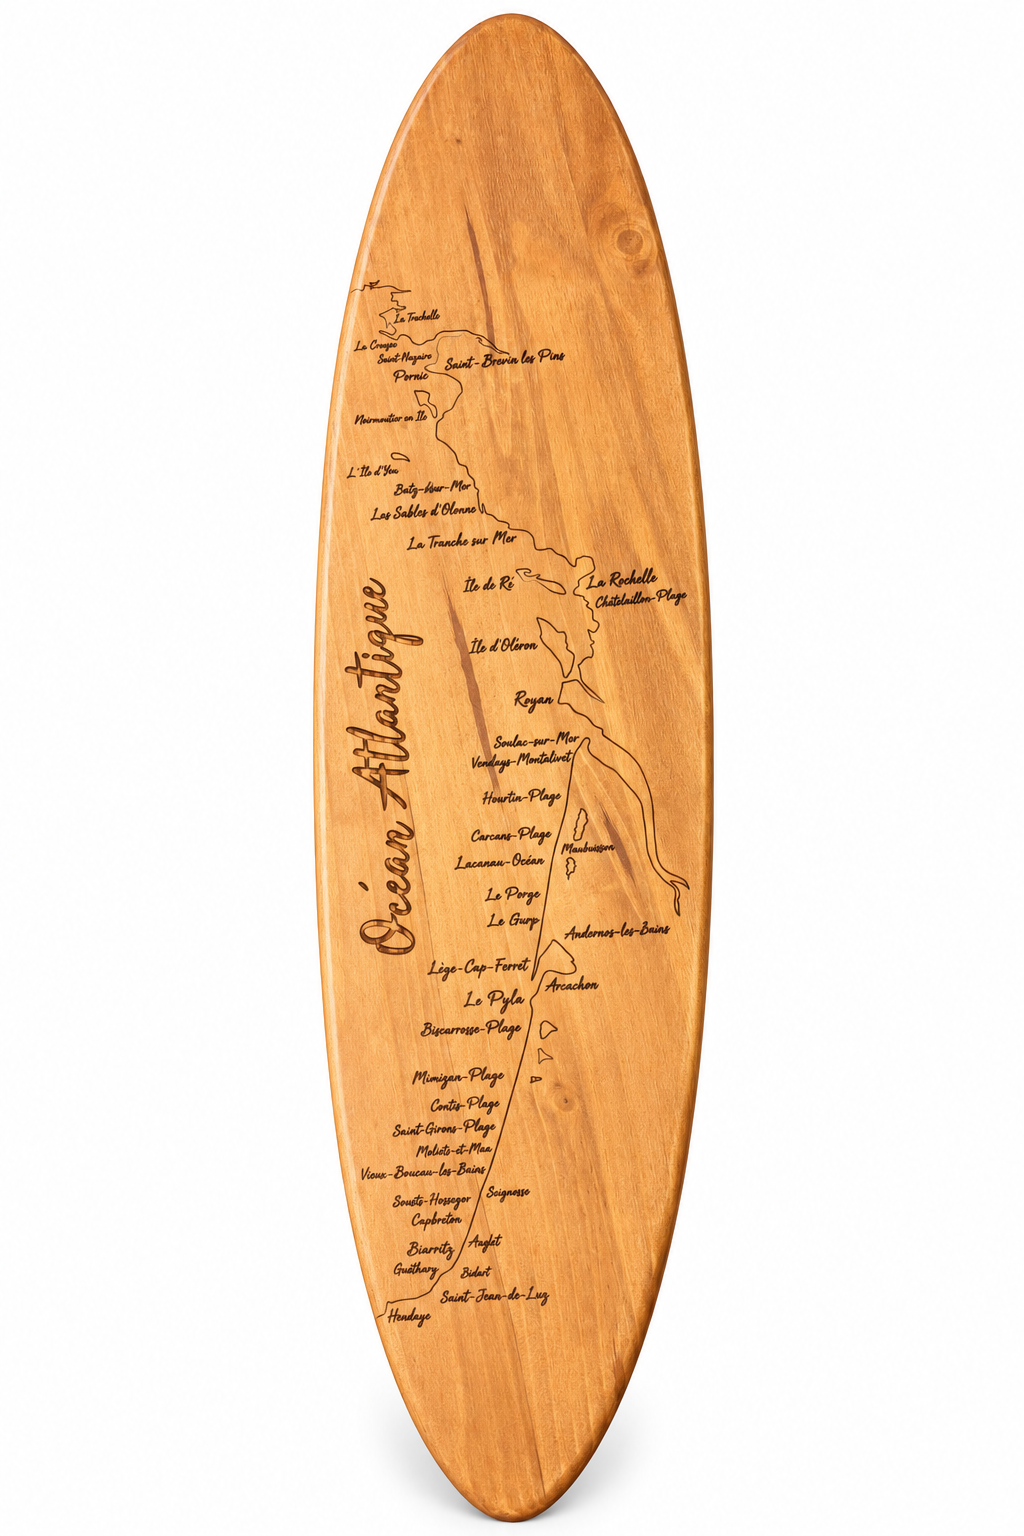 La Trachelle
Le Croogec
Saint-Nazaire
Saint-Brevin les Pins
Pornic
Noirmoutier en Ile
L'Île d'Yeu
Batz-sur-Mer
Les Sables d'Olonne
La Tranche sur Mer
Île de Ré
La Rochelle
Châtelaillon-Plage
Île d'Oléron
Royan
Soulac-sur-Mer
Vendays-Montalivet
Hourtin-Plage
Carcans-Plage
Maubuisson
Lacanau-Océan
Le Porge
Le Gurp
Andernos-les-Bains
Lège-Cap-Ferret
Arcachon
Le Pyla
Biscarrosse-Plage
Mimizan-Plage
Contis-Plage
Saint-Girons-Plage
Moliets-et-Maa
Vieux-Boucau-les-Bains
Seignosse
Sousto-Hossegor
Capbreton
Anglet
Biarritz
Guéthary
Bidart
Saint-Jean-de-Luz
Hendaye
Océan Atlantique